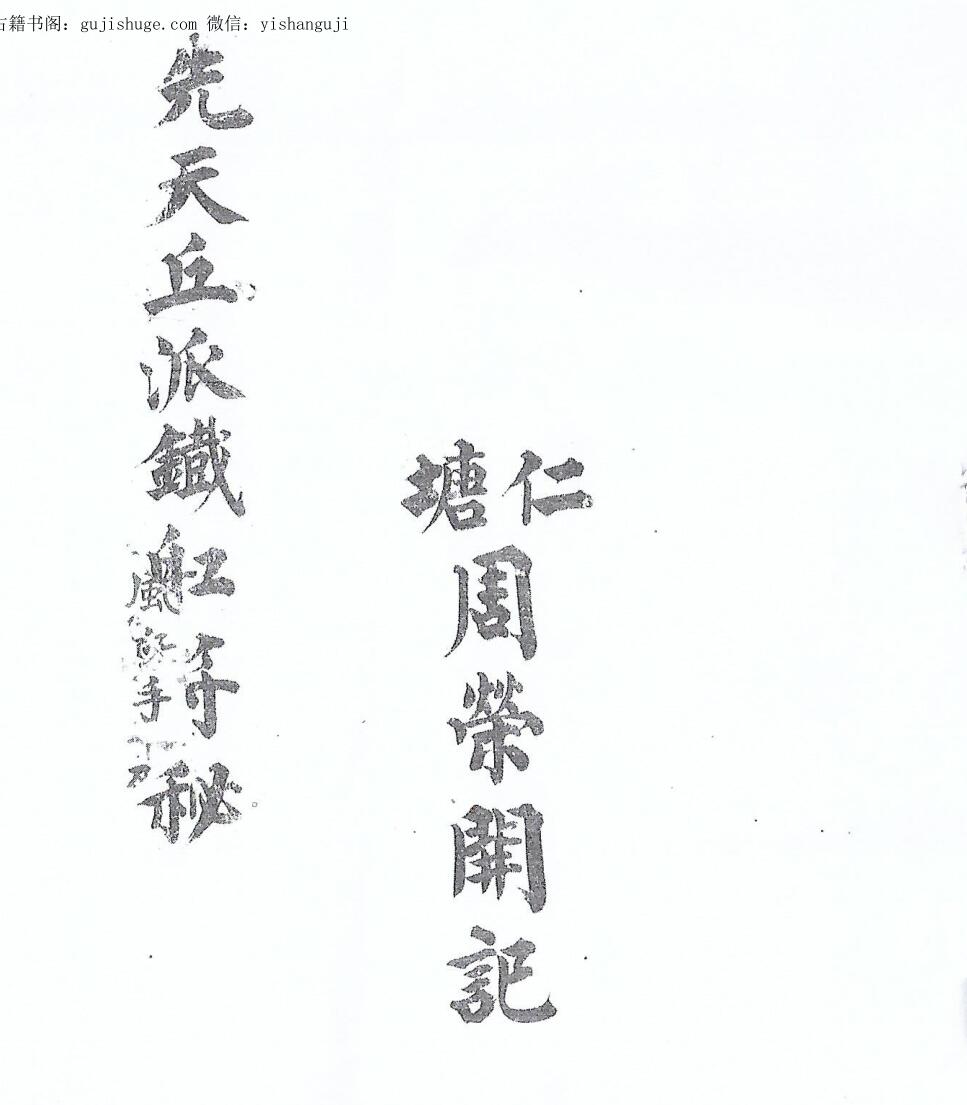 古籍书阁: gujishuge.com 微信: yishanguji
仁塘
周榮開記
先天丘派鐵缸符秘
風
手
刀